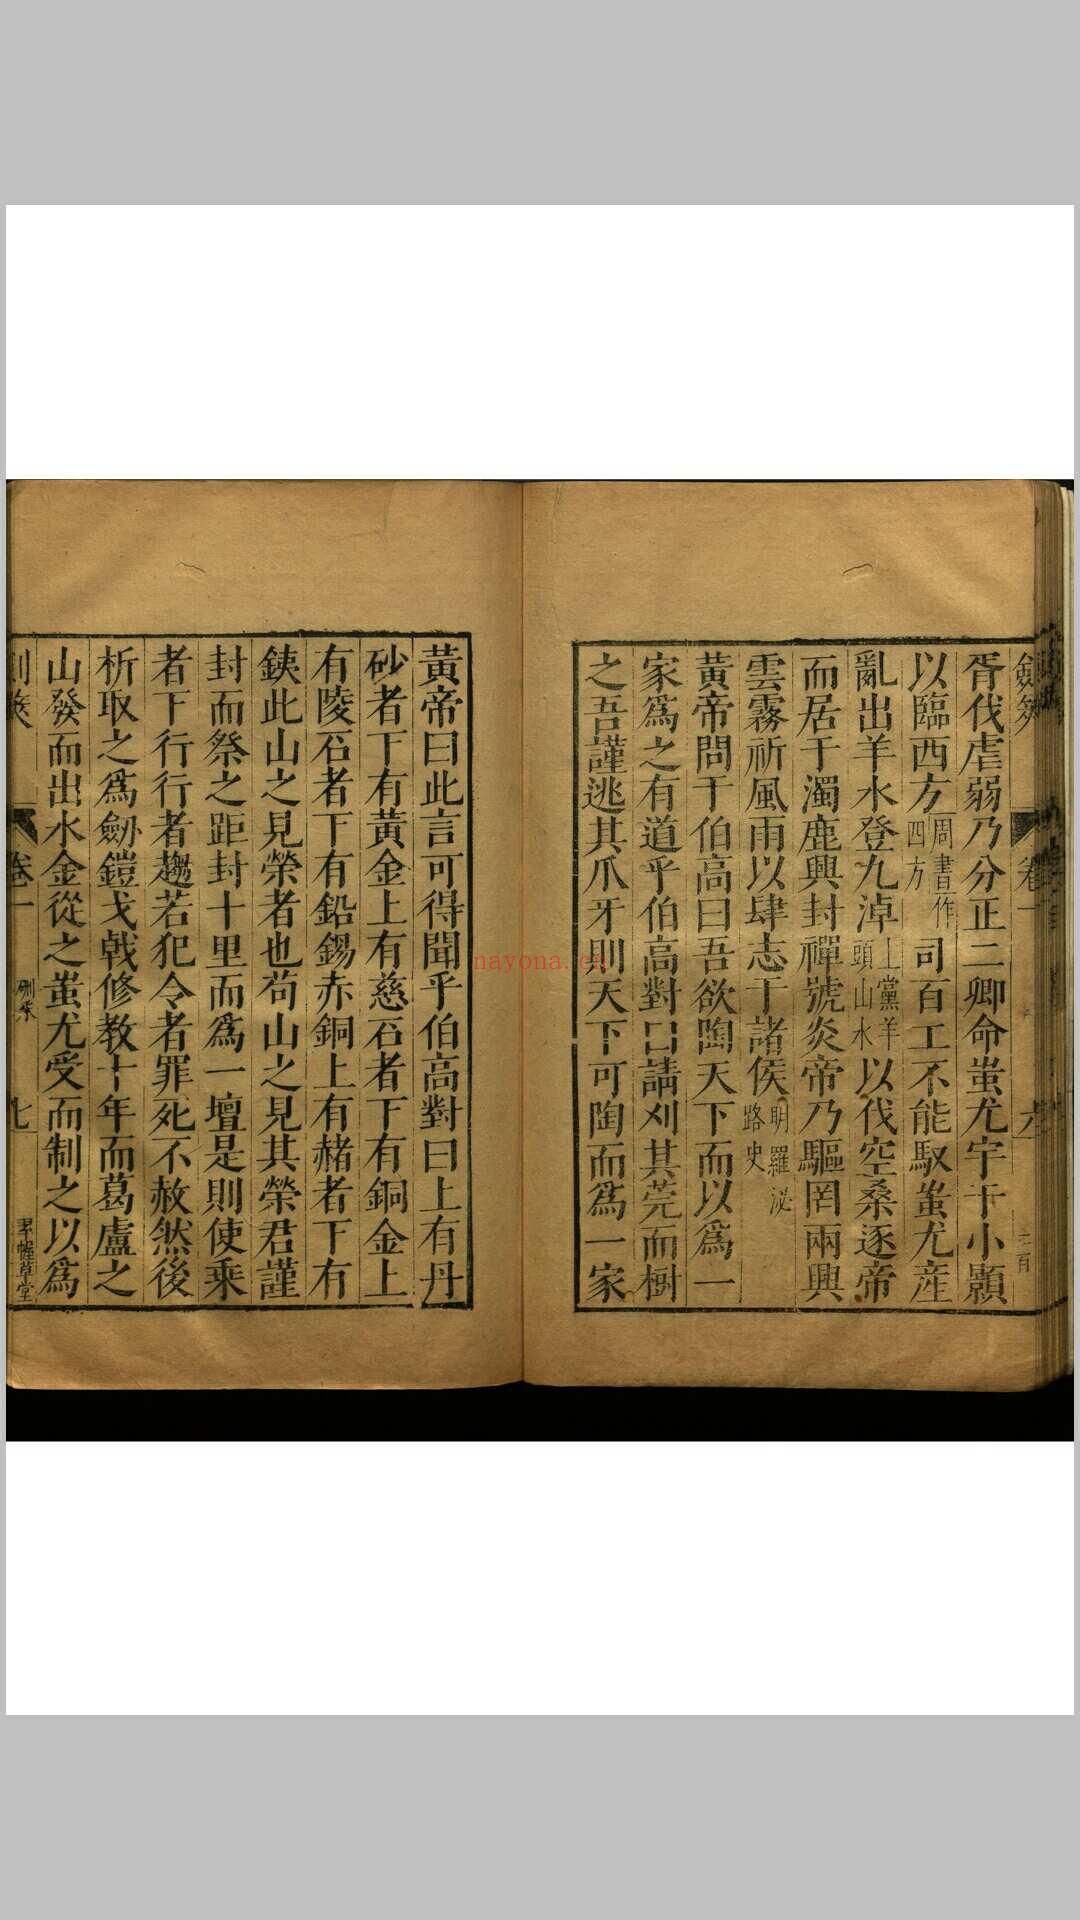 胥伐虐弱乃分正二卿命蚩尤宇于小顥
以臨西方周書作四方司百工不能馭蚩尤産
亂出羊水登九淖上黨羊頭山水以伐空桑逐帝
而居于濁鹿興封禪號炎帝乃驅罔兩興
雲霧祈風雨以肆志于諸侯明羅泌路史
黃帝問于伯高曰吾欲陶天下而以爲一
家爲之有道乎伯高對曰請刈其莞而樹
之吾謹逃其爪牙則天下可陶而爲一家
黃帝曰此言可得聞乎伯高對曰上有丹
砂者下有黃金上有慈石者下有銅金上
有陵石者下有鉛錫赤銅上有赭者下有
鐵此山之見榮者也苟山之見其榮君謹
封而祭之距封十里而爲一壇是則使乘
者下行行者趨若犯令者罪死不赦然後
析取之爲劒鎧戈戟修教十年而葛盧之
山發而出水金從之蚩尤受而制之以爲
卷一
七
草堂
nayona.cn